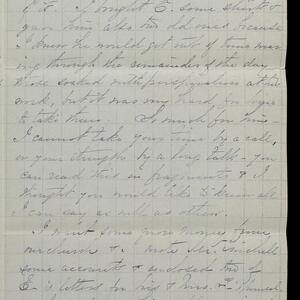 of it. I bought E. some shirts &
gave him also two old ones because
I knew he would get out of time was
ing through the remainder of the day
those soaked with perspiration at his
work, but it was very hard, for
to take them. So much for him –
I cannot take your time by a call,
or your strength by a long talk – you
can read this in fragments & I
thought you would like to know all
I can say as well as others.
I sent some more money from
our church & I wrote Mr.
some accounts & enclosed two of
E's letters for his & Mrs.